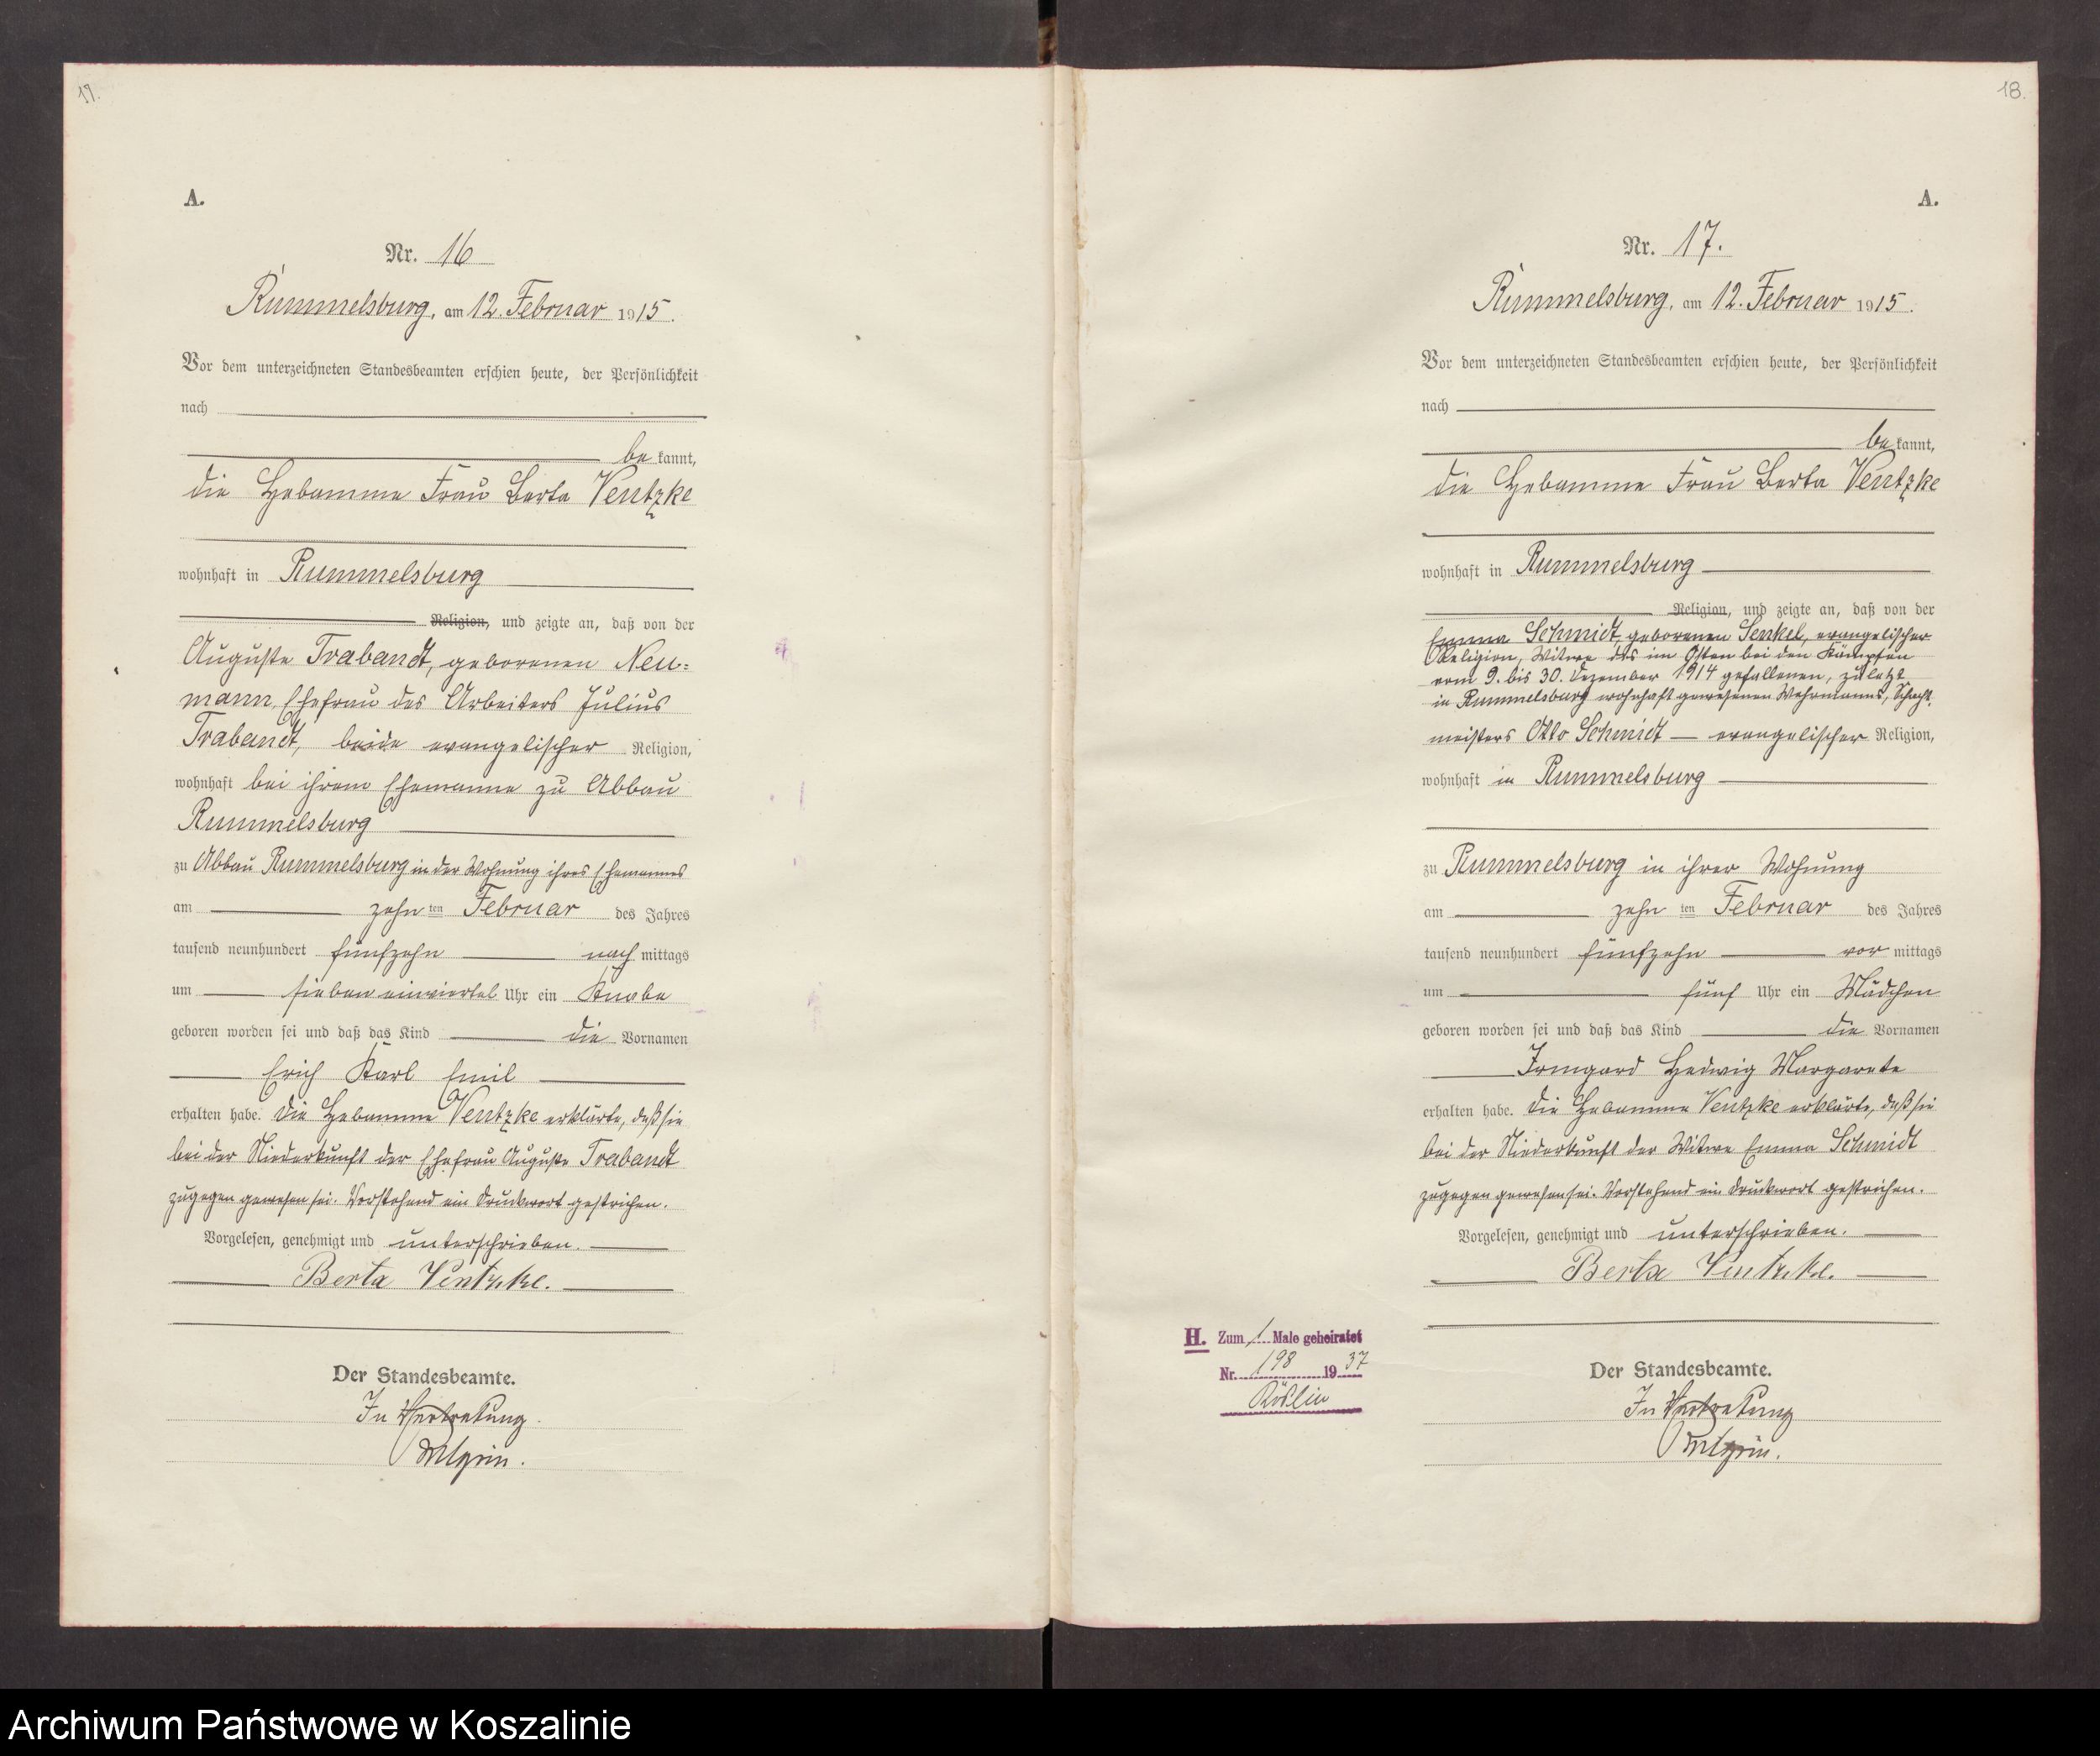 17.
A.
Nr. 16
Rummelsburg, am 12. Februar 1915.
Vor dem unterzeichneten Standesbeamten erschien heute, der Persönlichkeit
nach
be kannt,
die Hebamme Frau Berta Ventzke
wohnhaft in Rummelsburg
Religion, und zeigte an, daß von der
Auguste Trabandt, geborenen Neu=
mann, Ehefrau des Arbeiters Julius
Trabandt, beide evangelischer Religion,
wohnhaft bei ihrem Ehemanne zu Abbau
Rummelsburg
zu Abbau Rummelsburg in der Wohnung ihres Ehemannes
am zehn ten Februar des Jahres
tausend neunhundert fünfzehn nach mittags
um sieben einviertel Uhr ein Knabe
geboren worden sei und daß das Kind die Vornamen
Erich Karl Emil
erhalten habe. Die Hebamme Ventzke erklärte, daß sie
bei der Niederkunft der Ehefrau Auguste Trabandt
zugegen gewesen sei. Vorstehend ein Druckwort gestrichen.
Vorgelesen, genehmigt und unterschrieben.
Berta Ventzke.
Der Standesbeamte.
In Vertretung
18.
A.
Nr. 17.
Rummelsburg, am 12. Februar 1915.
Vor dem unterzeichneten Standesbeamten erschien heute, der Persönlichkeit
nach
be kannt,
die Hebamme Frau Berta Ventzke
wohnhaft in Rummelsburg
Religion, und zeigte an, daß von der
Emma Schmidt geborenen Senkel, evangelischer
Religion, Witwe des im Osten bei den Kämpfen
vom 9. bis 30. Dezember 1914 gefallenen, zuletzt
in Rummelsburg wohnhaft gewesenen Wehrmanns, Schacht
meisters Otto Schmidt — evangelischer Religion,
wohnhaft in Rummelsburg
zu Rummelsburg in ihrer Wohnung
am zehn ten Februar des Jahres
tausend neunhundert fünfzehn vor mittags
um fünf Uhr ein Mädchen
geboren worden sei und daß das Kind die Vornamen
Irmgard Hedwig Margarete
erhalten habe. Die Hebamme Ventzke erklärte, daß sie
bei der Niederkunft der Witwe Emma Schmidt
zugegen gewesen sei. Vorstehend ein Druckwort gestrichen.
Vorgelesen, genehmigt und unterschrieben.
Berta Ventzke.
H. Zum 1 Male geheiratet
Nr. 198 1937
Köslin
Der Standesbeamte.
In Vertretung
Archiwum Państwowe w Koszalinie